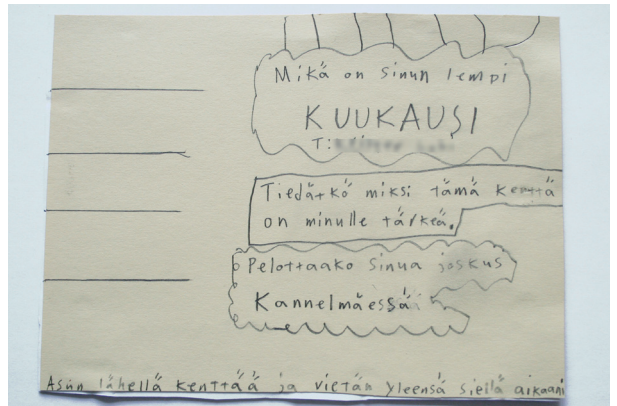 Mikä on sinun lempi
KUUKAUSI
T:
Tiedätkö miksi tämä kenttä
on minulle tärkeä.
Pelottaako sinua joskus
Kannelmäessä
Asun lähellä kenttää ja vietän yleensä siellä aikaani